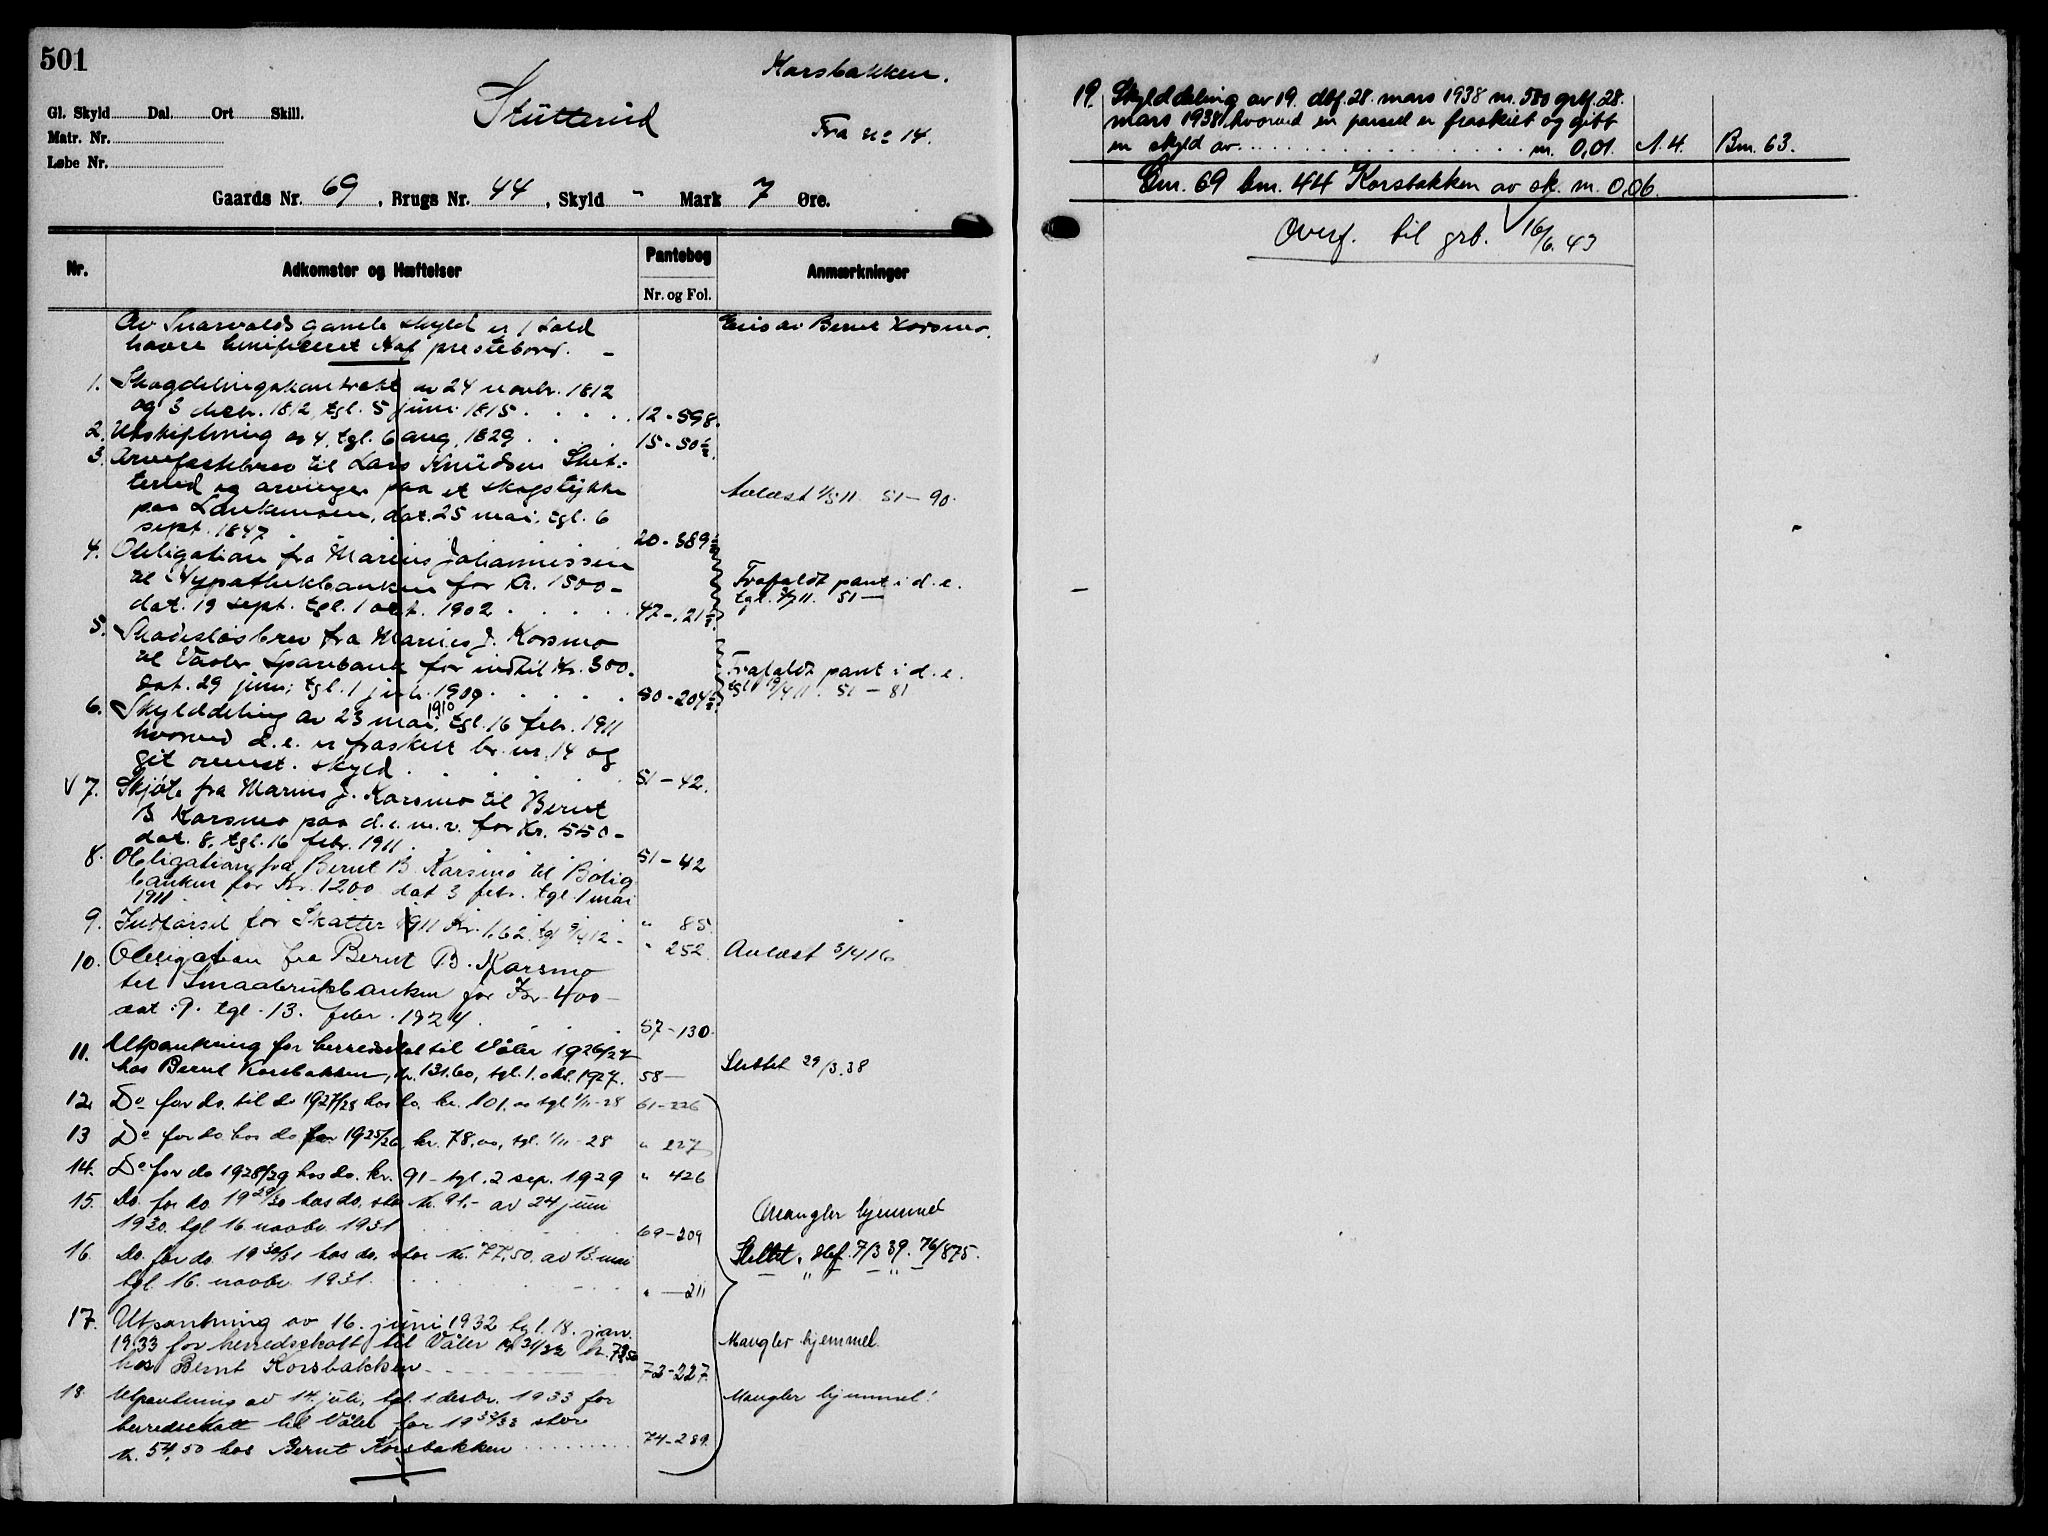 501
Korsbakken.
Stutterud
Gl. Skyld Dal. Ort Skill.
Fra No 14.
Matr. Nr.
Løbe Nr.
Gaards Nr. 69, Brugs Nr. 44, Skyld - Mark 7 Øre.
Nr. Adkomster og Hæftelser Pantebog Anmærkninger
Nr. og Fol.
Av Snarvolds gamle skyld er 1 Eies av Bernt Korsmo.
havre benificeret Hof prestebord. -
1. Skogdelingskontrakt av 24 novbr. 1812
og 3 decbr. 1812, tgl. 5 juni 1815. . . . . 12-598.
2. Utskiftning av 4, tgl. 6 aug. 1829 . . . 15-50½
3. Arvefæstebrev til Lars Knudsen Stut-
terud og arvinger paa et skogstykke Avlæst 1/5 11. 51-90.
paa Lankemoen, dat. 25 mai, tgl. 6
sept. 1847 . . 20-389½
4. Obligation fra Marius Johannissen
til Hypothekbanken for Kr. 1500- Frafaldt pant i d. e.
dat. 19 sept. tgl. 1 okt. 1902 . . . . 47-121½. tgl. 11. 51-
5. Skadesløsbrev fra Marius J. Korsmo
til Vaaler Sparebank for indtil Kr. 300. Frafaldt pant i d. e.
dat. 29 juni, tgl. 1 juli 1909. . . . . 50-204½. tgl 19/4 11. 51-81
6. Skylddeling av 23 mai 1910, tgl. 16 febr. 1911
hvorved d. e. er fraskilt br. nr. 14 og
git ovenst. skyld. . . . . . 51-42.
√ 7. Skjøte fra Marius J. Korsmo til Bernt
B Korsmo paa d. e. m. v. for Kr. 550-
dat. 8, tgl. 16 febr. 1911 . . . . 51-42
8. Obligation fra Bernt B. Korsmo til Bolig
banken for Kr. 1200 dat 3 febr. tgl 1 mai
1911 . . . . . . " 85.
9. Indførsel for Skatter 1911 Kr. 1.62. tgl 9/4 12 - " 252. Avlæst 3/4 16
10. Obligation fra Bernt B. Korsmo
til Smaabrukbanken for Kr 400-
dat. 9. tgl. 13. febr. 1924. . . . 57-130.
11. Utpantning for herredskat til Våler 1926/27
hos Bernt Korsbakken, kr. 131.60, tgl. 1. okt. 1927. 58- Slettet 29/3.38
12. Do for do. til do 1927/28 hos do, kr. 101.00 tgl 1/11-28 61-226
13 Do for do. hos do for 1925/26, kr. 78,00, tgl. 1/11-28 " 227
14. Do for do 1928/29 hos do. kr. 91- tgl. 2 sep. 1929 " 426
15. Do. for do. 1929/30 hos do. stor kr. 91.- av 24 juni
1930. tgl 16 novbr 1931 . . . . 69-209 Mangler hjemmel
16. Do. for do. 1930/31 hos do. stor kr. 77,50, av 13. mai Slettet, dbf. 7/3 39. 76/875.
tgl. 16. novbr 1931. . . . . " -211
17. Utpantning av 16. juni 1932 tgl. 18. jan.
1933 for herredsskatt til Våler 1931/32 kr. 79,50 Mangler hjemmel.
hos Bernt Korsbakken 72-227.
18. Utpantning av 14. juli, tgl. 1 desbr. 1933 for Mangler hjemmel!
herredsskatt til Våler for 1932/33 stor
kr. 54,50 hos Bernt Korsbakken . . . . 74-289.
19. Skylddeling av 19. dbf. 28. mars 1938 m. 580 grbf. 28.
mars 1938 hvorved en parsell er fraskilt og gitt
en skyld av . . . . . . m. 0,01. A. 4. Bm. 63.
Gnr. 69 bnr. 44 Korsbakken av sk. m. 0,06.
Overf. til grb. 16/6.43